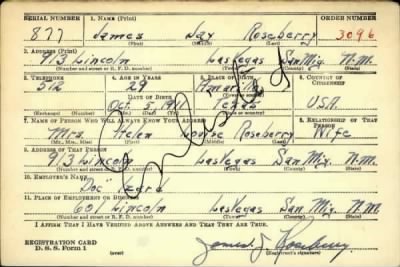 SERIAL NUMBER 1. NAME (Print) ORDER NUMBER
877 James Jay Roseberry 3096
(First) (Middle) (Last)
2. ADDRESS (Print)
913 Lincoln Las Vegas San Mig. N.M.
(Number and street or R. F. D. number) (Town) (County) (State)
3. TELEPHONE 4. AGE IN YEARS 5. PLACE OF BIRTH 6. COUNTRY OF CITIZENSHIP
512 29 Amarillo
DATE OF BIRTH
Oct. 5, 1911 Texas U.S.A.
(Exchange) (Number) (Mo.) (Day) (Yr.) (State or country)
7. NAME OF PERSON WHO WILL ALWAYS KNOW YOUR ADDRESS 8. RELATIONSHIP OF THAT PERSON
Mrs. Helen Louise Roseberry Wife
(Mr., Mrs., Miss) (First) (Middle) (Last)
9. ADDRESS OF THAT PERSON
913 Lincoln Las Vegas San Mig. N.M.
(Number and street or R. F. D. number) (Town) (County) (State)
10. EMPLOYER'S NAME
"Doc" Izard
11. PLACE OF EMPLOYMENT OR BUSINESS
601 Lincoln Las Vegas San Mig. N.M.
(Number and street or R. F. D. number) (Town) (County) (State)
I AFFIRM THAT I HAVE VERIFIED ABOVE ANSWERS AND THAT THEY ARE TRUE.
REGISTRATION CARD
D. S. S. Form 1 James J. Roseberry
(Registrant's signature)